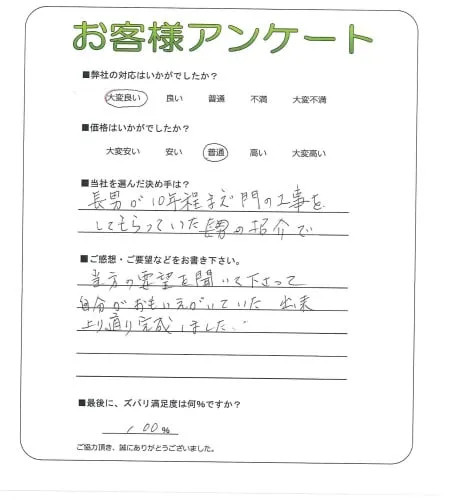 お客様アンケート
■弊社の対応はいかがでしたか？
大変良い 良い 普通 不満 大変不満
■価格はいかがでしたか？
大変安い 安い 普通 高い 大変高い
■当社を選んだ決め手は？
長男が10年程まえ門の工事を
してもらっていた長男の紹介で
■ご感想・ご要望などをお書き下さい。
当方の要望を聞いて下さって
自分がおもいえがいていた 出来
上り通り完成しました。
■最後に、ズバリ満足度は何%ですか？
100%
ご協力頂き、誠にありがとうございました。